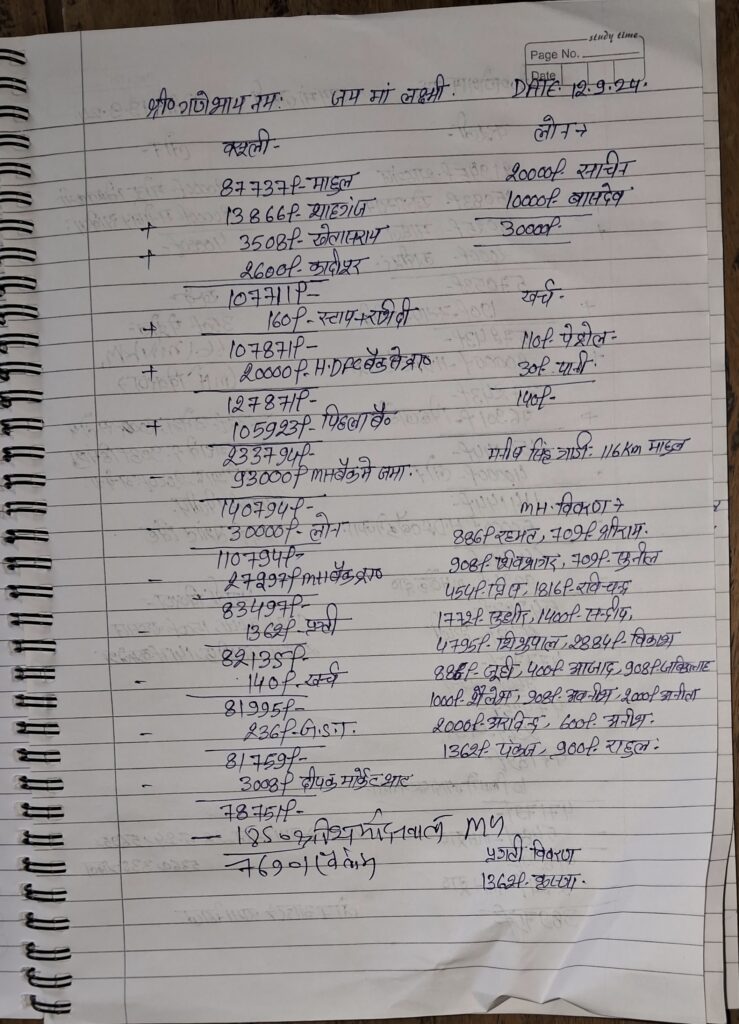 study time
Page No.
Date
श्री गणेशाय नमः जय मां लक्ष्मी. DATE. 12.9.24.
वसूली-
87737/- माहुल
13866/- शाहगंज
+ 3508/- खेतासराय
+ 2600/- कादीपुर
107711/-
+ 160/- स्टाप+रसीदी
107871/-
+ 20000/- H.DFC बैंक से प्राप्त
127871/-
+ 105923/- पिछला बैं०
233794/-
- 93000/- MH बैंक मे जमा.
140794/-
- 30000/- लोन
110794/-
- 27297/- MH बैंक प्राप्त
83497/-
- 1362/- प्रगती
82135/-
- 140/- खर्च
81995/-
- 236/- G.S.T.
81759/-
- 3008/- दीपक मार्केट
78751/-
- 1850 MH
76901
लोन→
20000/- सचिन
10000/- बासदेव
30000/-
खर्च-
110/- पेट्रोल-
30/- पानी
140/-
मनीष सिंह गाड़ी- 116 Km माहुल
MH- विवरण→
886/- रहमत, 709/- श्रीराम.
908/- शिवसागर, 709/- सुनील
454/- प्रिंस, 1816/- रविचन्द्र
1772/- सुधीर, 1400/- सन्दीप,
4795/- शिशुपाल, 2884/- विकास
886/- जूही, 400/- आजाद, 908/-
1000/- शैलेश, 908/- अवनीश, 2000/- अनीता
2000/- अरविन्द, 600/- अनीश.
1362/- पंकज, 900/- राहुल.
प्रगती विवरण
1362/-